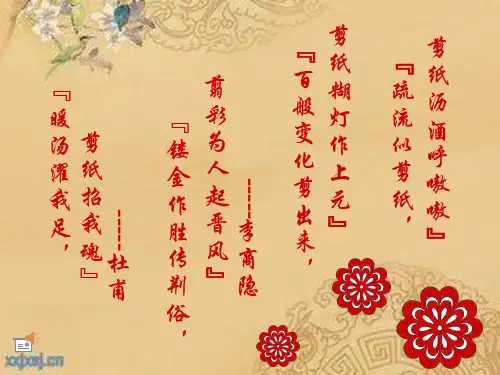 『暖汤濯我足，
剪纸招我魂』
------杜甫
『镂金作胜传荆俗，
翦彩为人起晋风』
------李商隐
『百般变化剪出来，
剪纸糊灯作上元』
『疏流似剪纸，
剪纸汤酒呼嗷嗷』